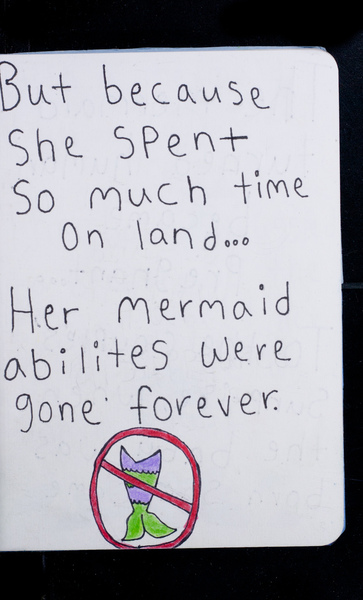 But because
She Spent
So much time
On land...
Her mermaid
abilites were
gone forever.